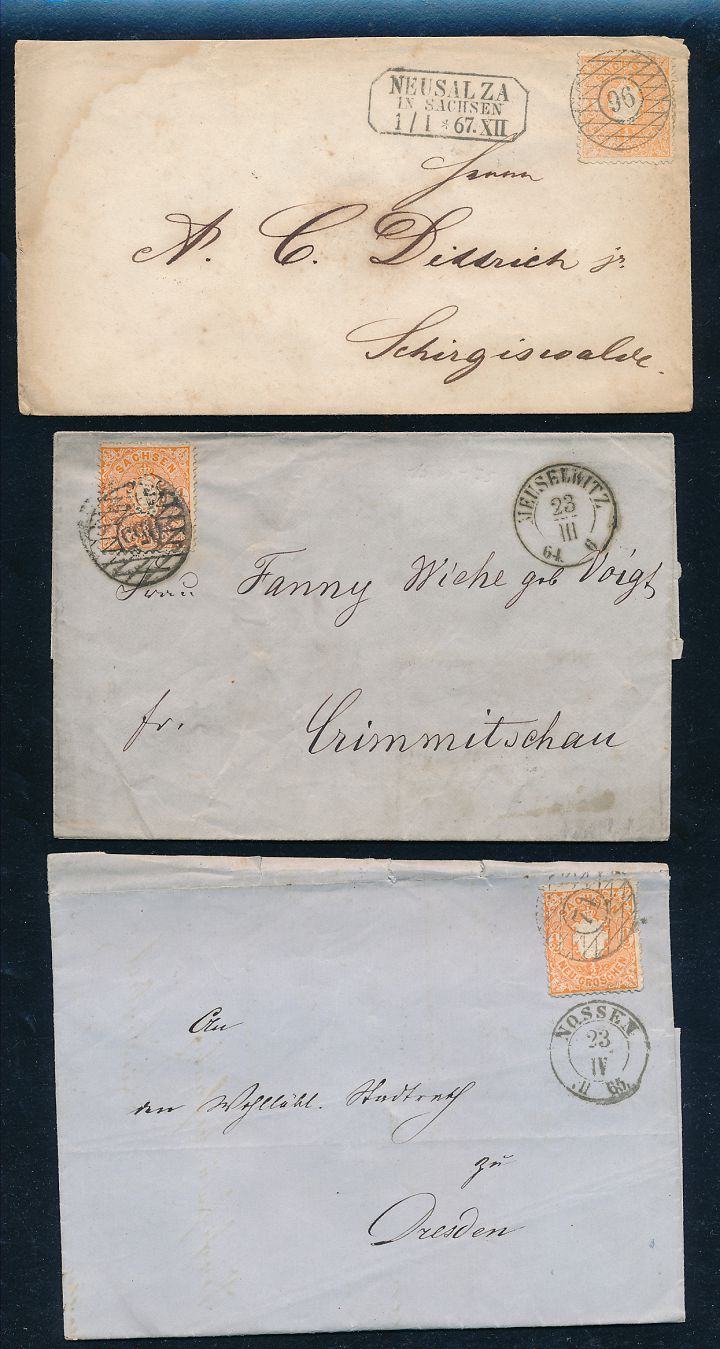 NEUSALZA
IN SACHSEN
1 / I * 67. XII
96
Herrn
A. C. Dittrich jr.
Schirgiswalde.
SACHSEN
MEUSELWITZ
23
III
64 6
Frau Fanny Wiehe geb Voigt
fr. Crimmitschau
SACHSEN
NEU-GROSCHEN
NOSSEN
23
IV
65.
An
den Wohllöbl. Stadtrath
zu
Dresden